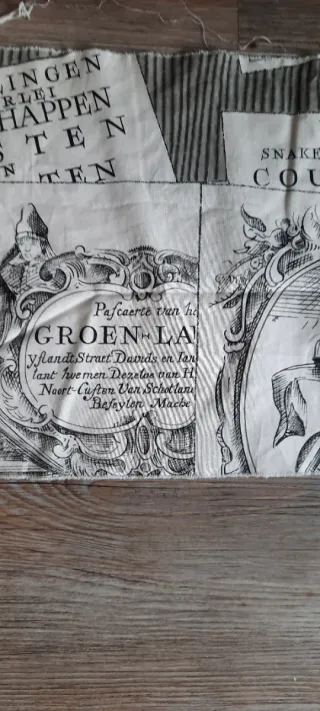 LINGEN
ERLEI
HAPPEN
STEN
N
TEN
SNAKE
COU
Pascaerte van he
GROEN-LA
Yslandt, Straet Davids en Ian
lant hoemen Dezelve van H
Noort-Custen Van Schotlan
Beseylen Mach